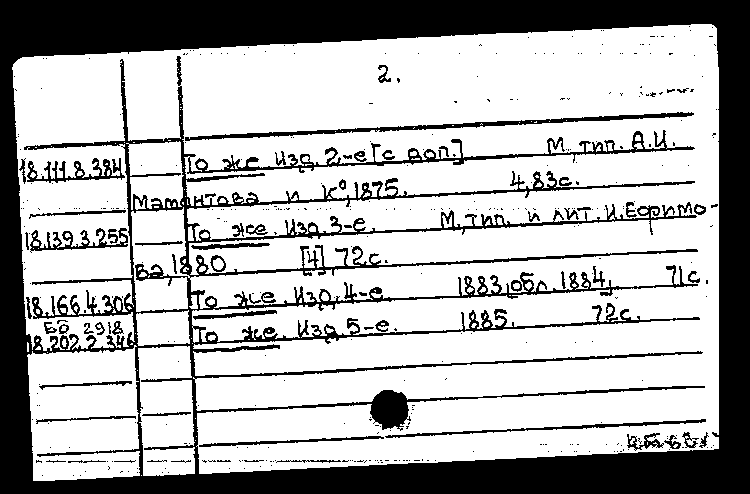 2.
18.111.8.384 То же. Изд. 2,-е [с доп.] М., тип. А.И.
Мамонтова и К°, 1875. 4,83с.
18.139.3.255 То же. Изд. 3-е. М., тип. и лит. И. Ефримо-
ва, 1880. [4], 72с.
18.166.4.306 То же. Изд. 4-е. 1883, [обл. 1884]. 71с.
ББ 2918
18.202.2.346 То же. Изд. 5-е. 1885. 72с.